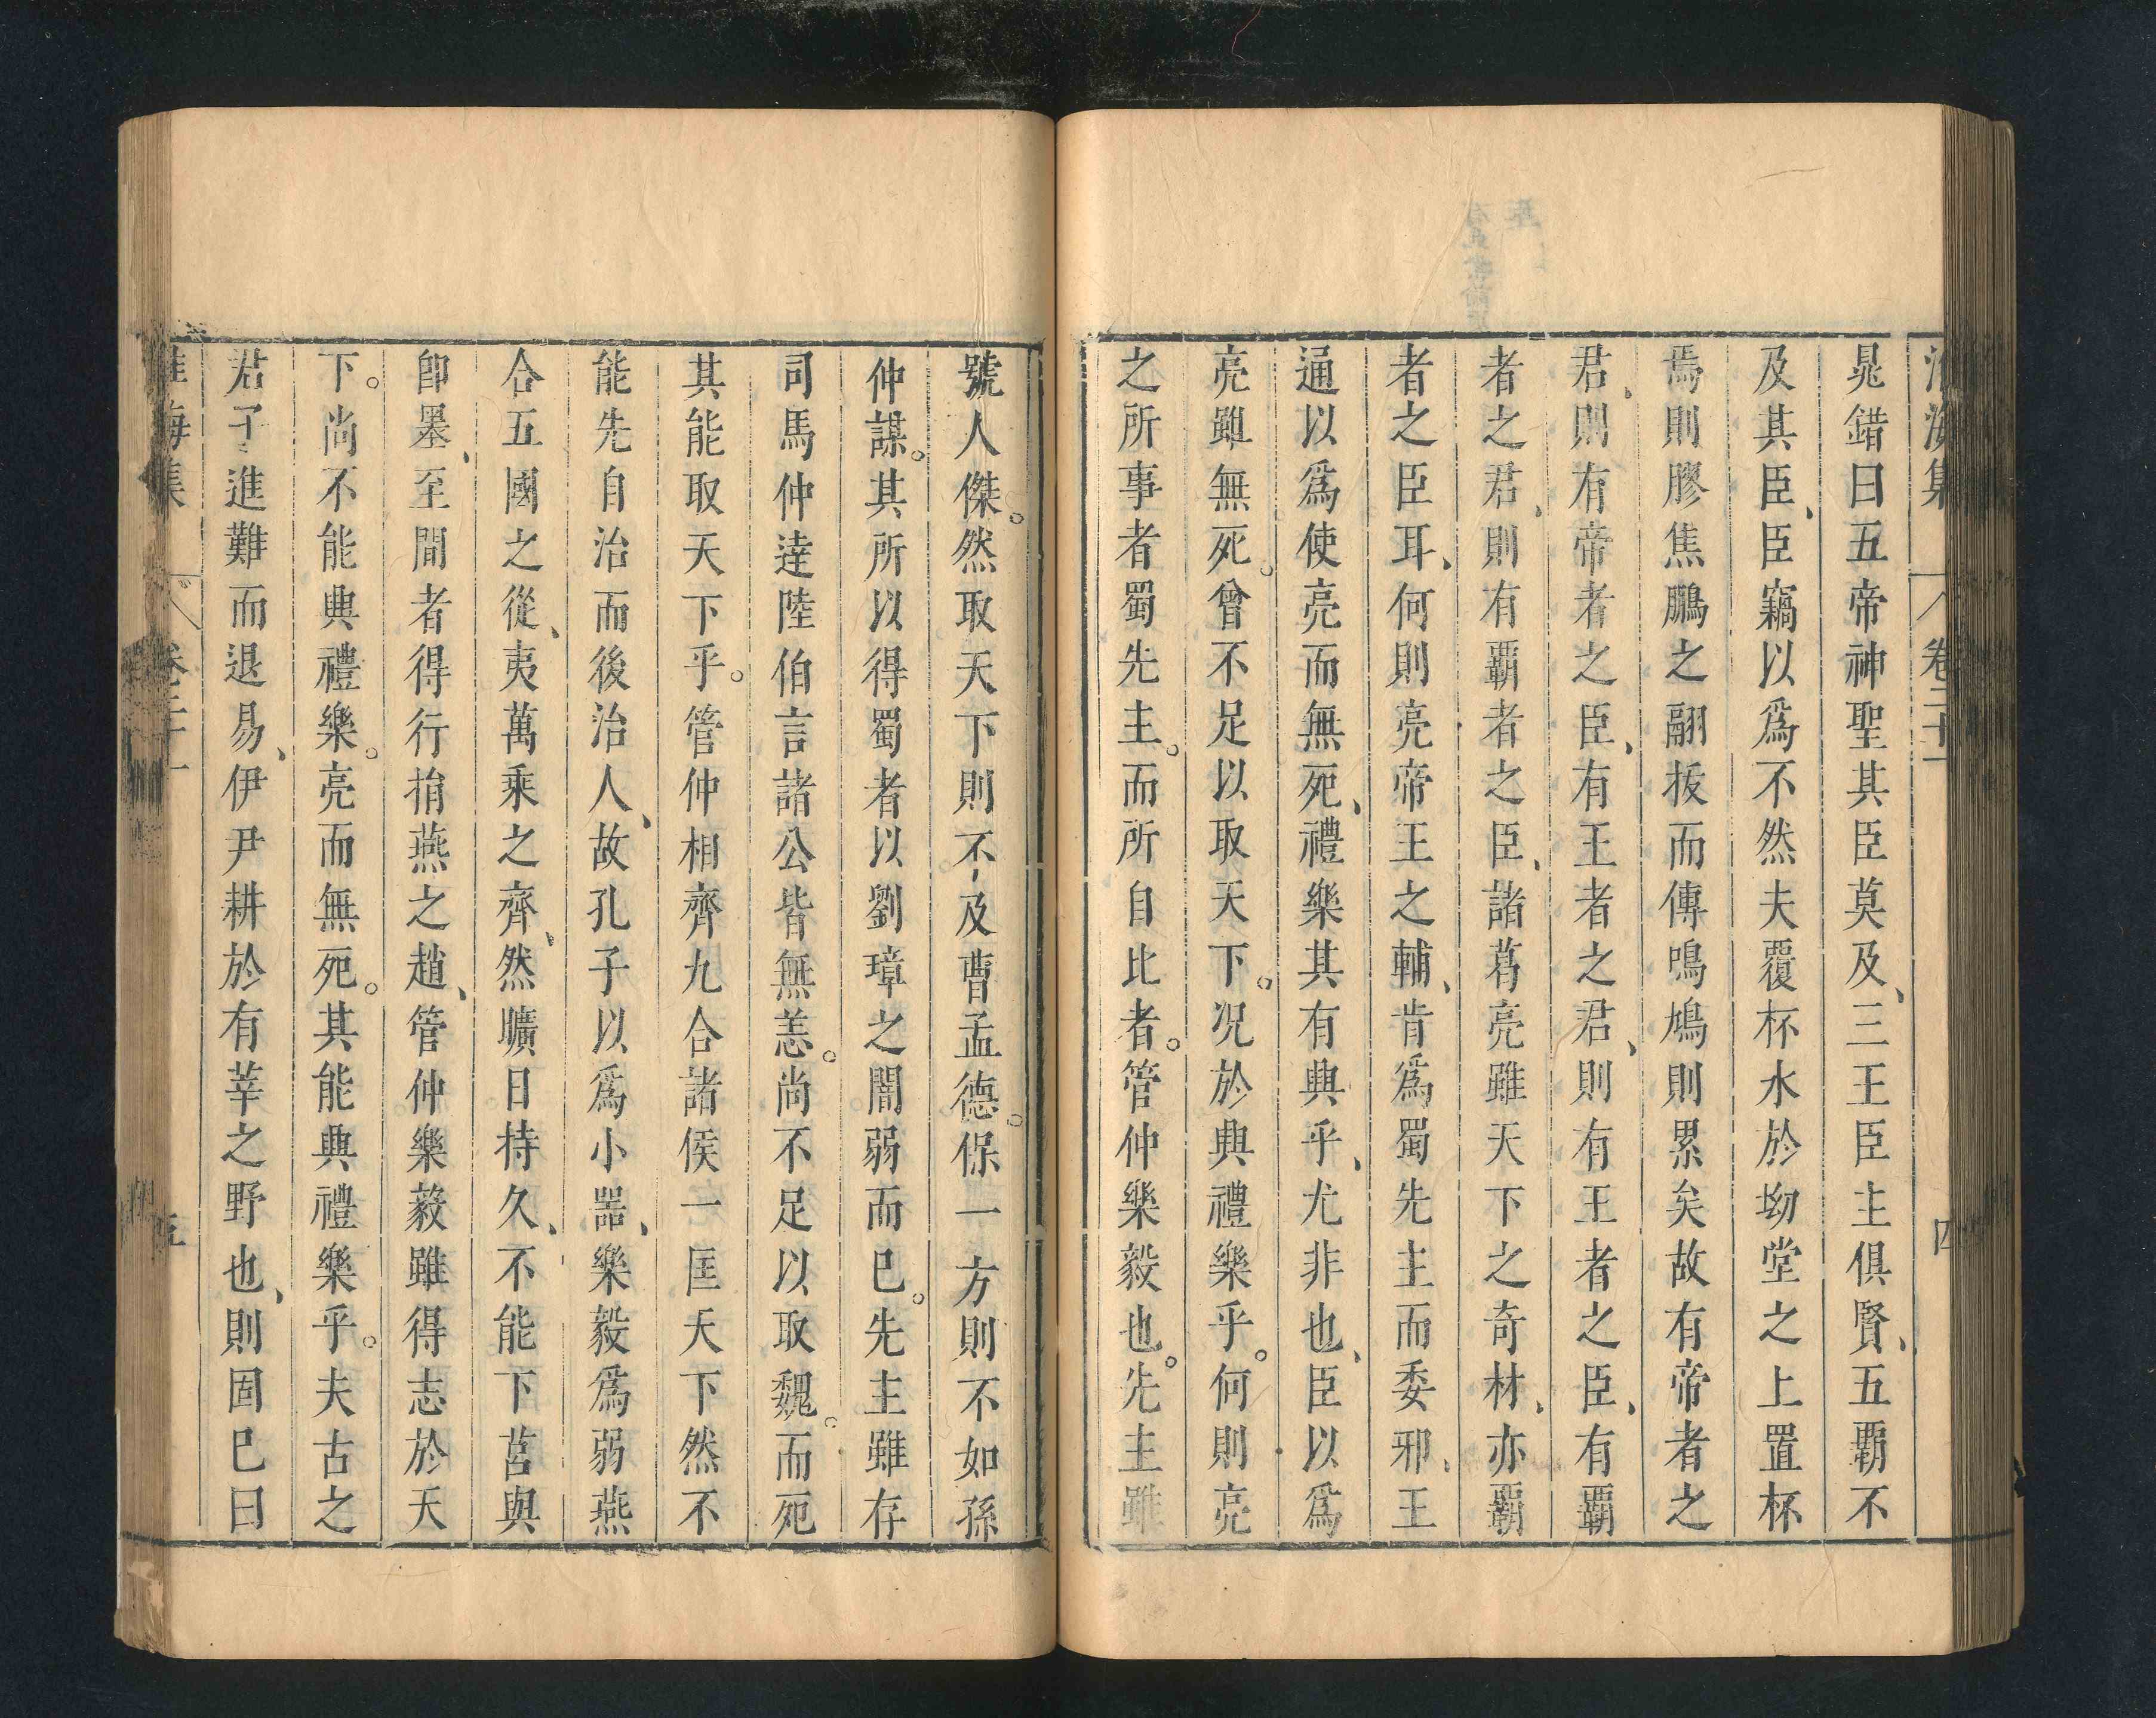 淮海集 卷二十一 四
晁錯曰五帝神聖其臣莫及、三王臣主俱賢、五霸不
及其臣、臣竊以為不然夫覆杯水於坳堂之上置杯
焉則膠焦鵬之翮拔而傳鳴鳩則累矣故有帝者之
君、則有帝者之臣、有王者之君、則有王者之臣、有霸
者之君、則有霸者之臣、諸葛亮雖天下之奇材、亦霸
者之臣耳、何則亮帝王之輔、肯為蜀先主而委邪、王
通以為使亮而無死、禮樂其有興乎、尤非也、臣以為
亮雖無死。曾不足以取天下。况於興禮樂乎。何則亮
之所事者蜀先主。而所自比者。管仲樂毅也。先主雖
號人傑。然取天下則不及曹孟德。保一方則不如孫
仲謀。其所以得蜀者以劉璋之闇弱而已。先主雖存
司馬仲逹陸伯言諸公皆無恙。尚不足以取魏。而死
其能取天下乎。管仲相齊九合諸侯一匡天下然不
能先自治而後治人、故孔子以為小噐、樂毅為弱燕
合五國之從、夷萬乘之齊、然曠日持久、不能下莒與
卽墨、至間者得行捐燕之趙、管仲樂毅雖得志於天
下。尚不能興禮樂。亮而無死。其能興禮樂乎。夫古之
君子進難而退易、伊尹耕於有莘之野也、則固已曰
淮海集 卷二十一 五